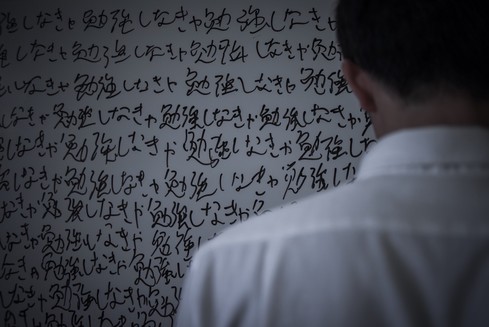 強しなきゃ勉強しなきゃ勉強しなきゃ
しなきゃ勉強しなきゃ勉強しなきゃ
しなきゃ勉強しなきゃ勉強しなきゃ勉強
しなきゃ勉強しなきゃ勉強しなきゃ勉強しなきゃ
しなきゃ勉強しなきゃ勉強しなきゃ勉強し
しなきゃ勉強しなきゃ勉強しなきゃ勉強し
なきゃ勉強しなきゃ勉強しなきゃ
なきゃ勉強しなきゃ勉強
なきゃ勉強しなきゃ勉強
なきゃ勉強しなきゃ勉
しなきゃ勉強しなきゃ